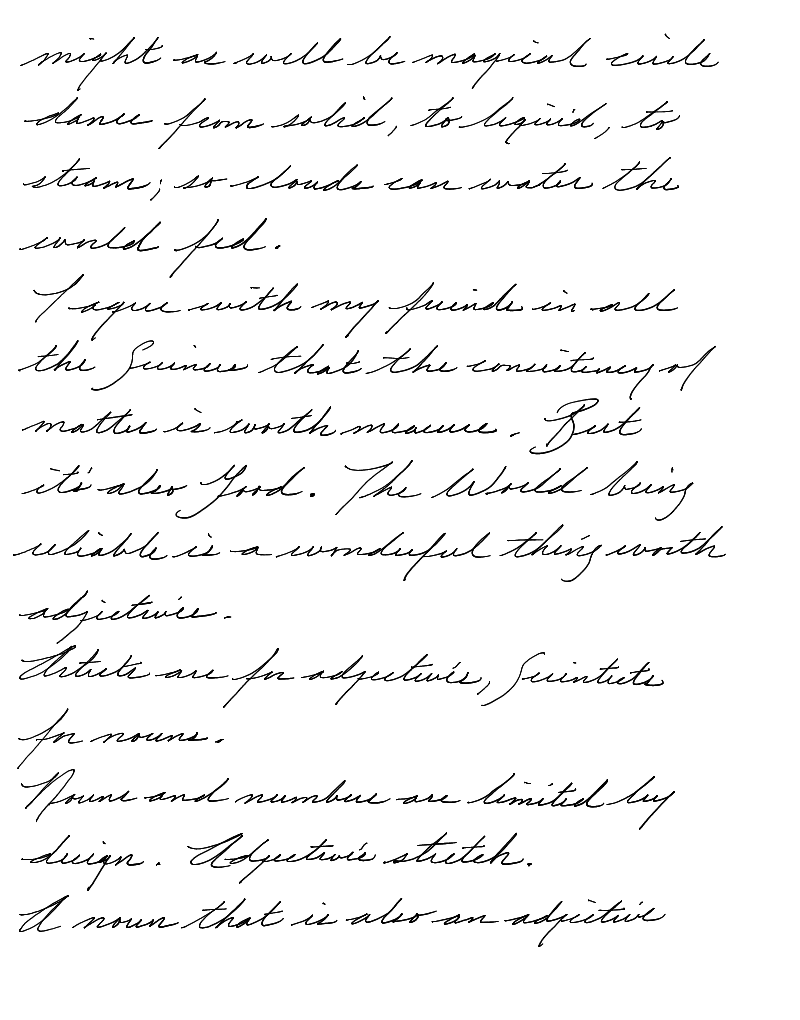 might as well be magical circle
dance from solid, to liquid, to
steam; so clouds can water the
world fed.
I agree with my friends in all
the Sciences that the consistency of
matter is worth measure. But
it's also Good. The World being
reliable is a wonderful thing worth
adjectives.
Artists are for adjectives, Scientists
for nouns.
Nouns and numbers are limited by
design. Adjectives stretch.
A noun that is also an adjective